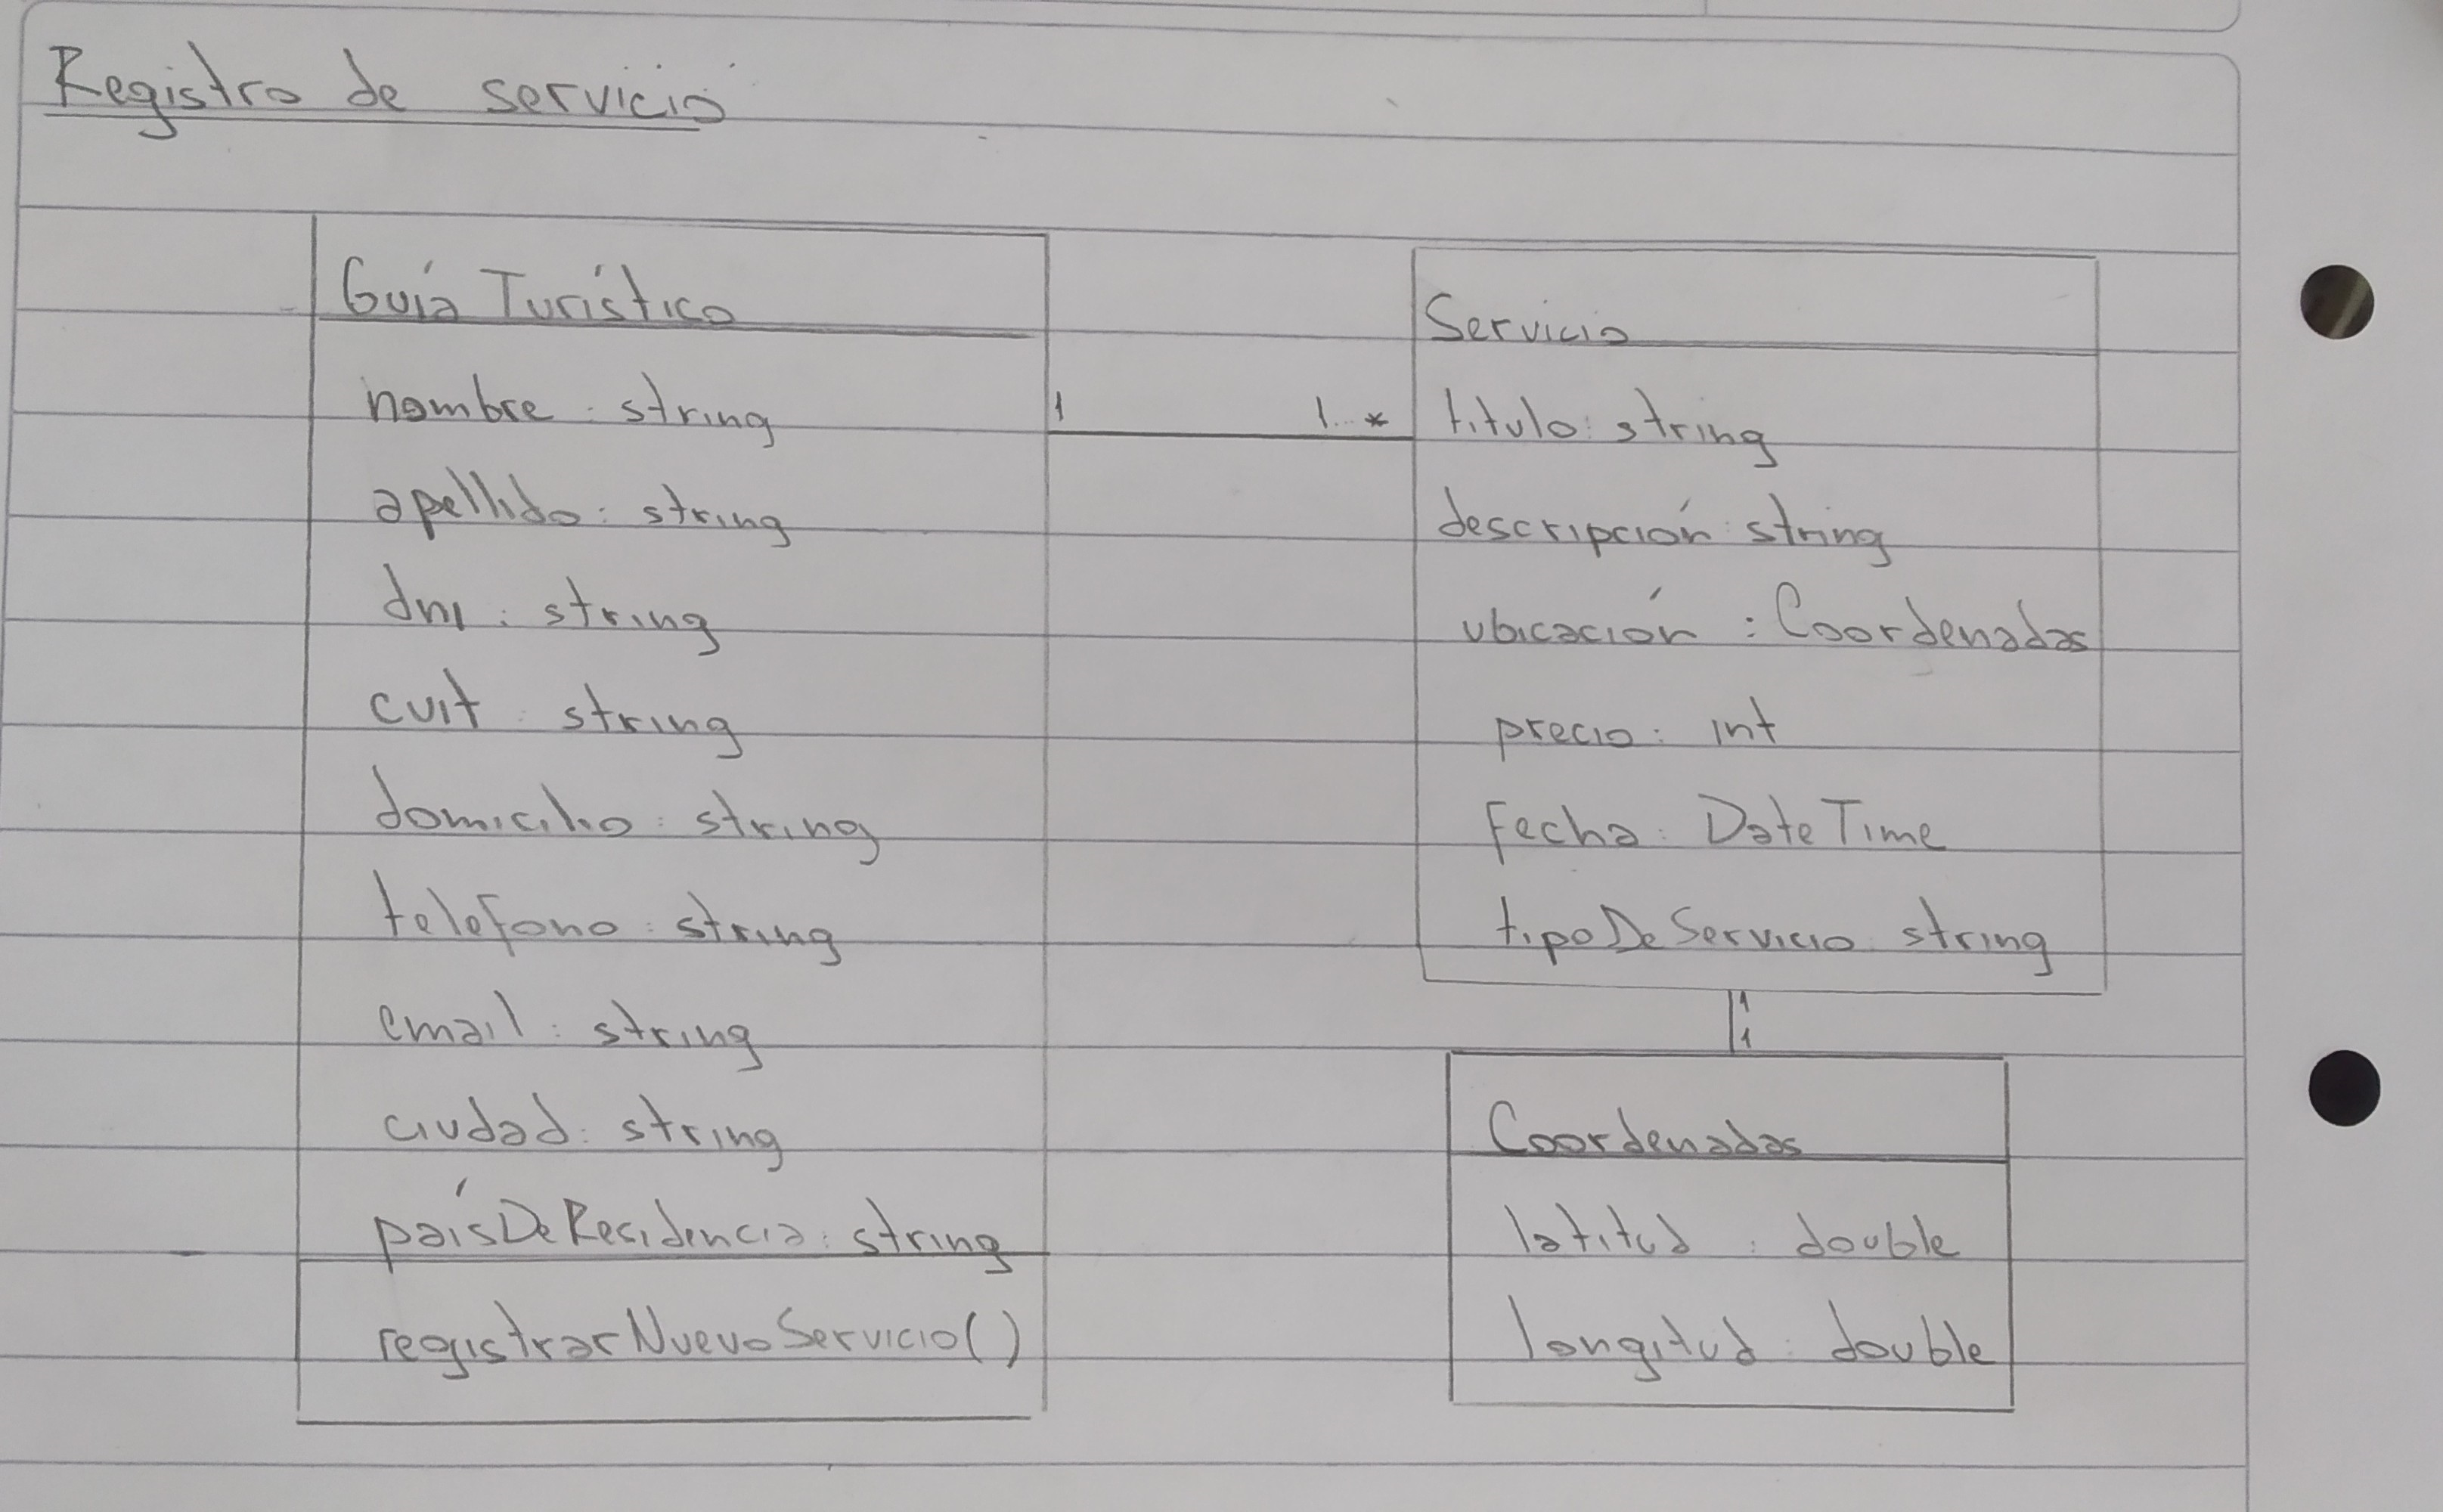 Registro de servicio
Guía Turístico
nombre: string
apellido: string
dni: string
cuit: string
domicilio: string
telefono: string
email: string
ciudad: string
paísDeResidencia: string
registrarNuevoServicio()
1 1..*
Servicio
titulo: string
descripción: string
ubicación: Coordenadas
precio: int
fecha: DateTime
tipoDeServicio: string
1
1
Coordenadas
latitud: double
longitud: double